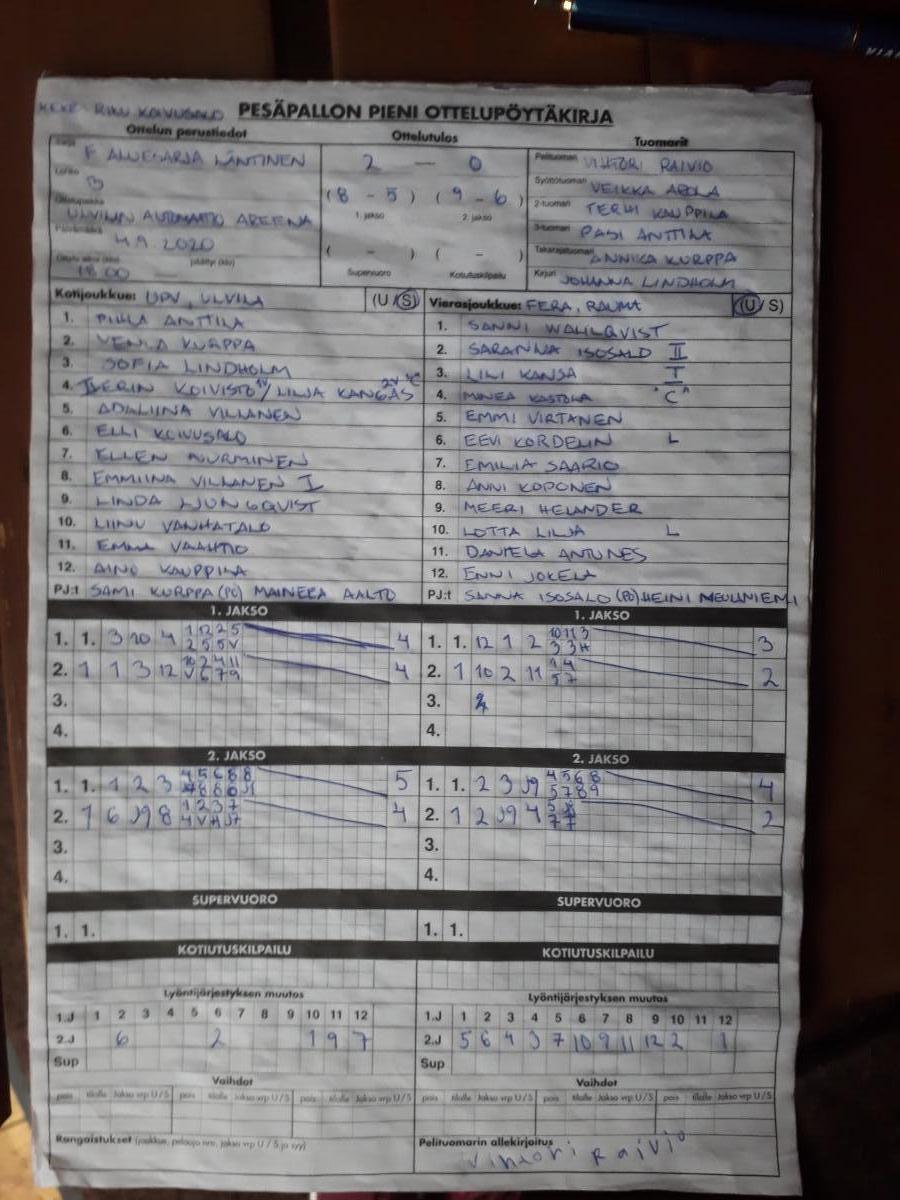 RIKU KOIVUSALO PESÄPALLON PIENI OTTELUPÖYTÄKIRJA
Ottelun perustiedot Ottelutulos Tuomarit
F ALUESARJA LÄNTINEN 2 — 0 Pelituomari VIHTORI RAIVIO
Lohko B (8 - 5) (9 - 6) Syöttötuomari VEIKKA AROLA
Ottelupaikka 1. jakso 2. jakso 2-tuomari TERHI KAUPPILA
ULVILAN AUTOMAATIO AREENA 3-tuomari PASI ANTTILA
Päivämäärä 4.9.2020 ( - ) ( - ) Takarajatuomari ANNIKA KURPPA
18.00 Supervuoro Kotiutuskilpailu Kirjuri JOHANNA LINDHOLM
Kotijoukkue: UPV, ULVILA (U/S) Vierasjoukkue: FERA, RAUMA (U/S)
1. PIHLA ANTTILA 1. SANNI WAHLQVIST
2. VENLA KURPPA 2. SARANNA ISOSALO II
3. SOFIA LINDHOLM 3. LILI KANSA I
4. IVERIN KOIVISTO / LILJA KANGAS 4. MINEA KASTOLA "C"
5. ADALIINA VILLANEN 5. EMMI VIRTANEN
6. ELLI KOIVUSALO 6. EEVI KORDELIN L
7. ELLEN NURMINEN 7. EMILIA SAARIO
8. EMMIINA VILLANEN I 8. ANNI KOPONEN
9. LINDA LJUNGQVIST 9. MEERI HELANDER
10. LIINU VANHATALO 10. LOTTA LILJA L
11. EMMA VAAHTIO 11. DANIELA ANTUNES
12. AINO KAUPPILA 12. ENNI JOKELA
PJ:t SAMI KURPPA (PO) MAINEKA AALTO PJ:t SANNA ISOSALO (PO) HEINI NEULANIEMI
1. JAKSO 1. JAKSO
1. 1. 3 10 4 1 12 2 5 4 1. 1. 12 1 2 10 11 3 3
2 5 5 V 3 3 H
2. 1 1 3 12 10 2 4 11 4 2. 1 10 2 11 1 4 2
V 6 7 9 5 7
3. 3.
4. 4.
2. JAKSO 2. JAKSO
1. 1. 1 2 3 4 5 6 8 8 5 1. 1. 2 3 J9 4 5 6 8 4
5 7 8 9
2. 1 6 J9 8 1 2 3 7 4 2. 1 2 J9 4 5 8 2
4 V H J7 7 7
3. 3.
4. 4.
SUPERVUORO SUPERVUORO
1. 1. 1. 1.
KOTIUTUSKILPAILU KOTIUTUSKILPAILU
Lyöntijärjestyksen muutos Lyöntijärjestyksen muutos
1.J 1 2 3 4 5 6 7 8 9 10 11 12 1.J 1 2 3 4 5 6 7 8 9 10 11 12
2.J 6 2 1 9 7 2.J 5 6 4 3 7 10 9 11 12 2 1
Sup Sup
Vaihdot Vaihdot
pois tilalle Jakso vrp U/S pois tilalle Jakso vrp U/S pois tilalle Jakso vrp U/S pois tilalle Jakso vrp U/S pois tilalle Jakso vrp U/S pois tilalle Jakso vrp U/S
Rangaistukset (joukkue, pelaaja nro, jakso vrp U / S ja syy) Pelituomarin allekirjoitus
Vihtori Raivio